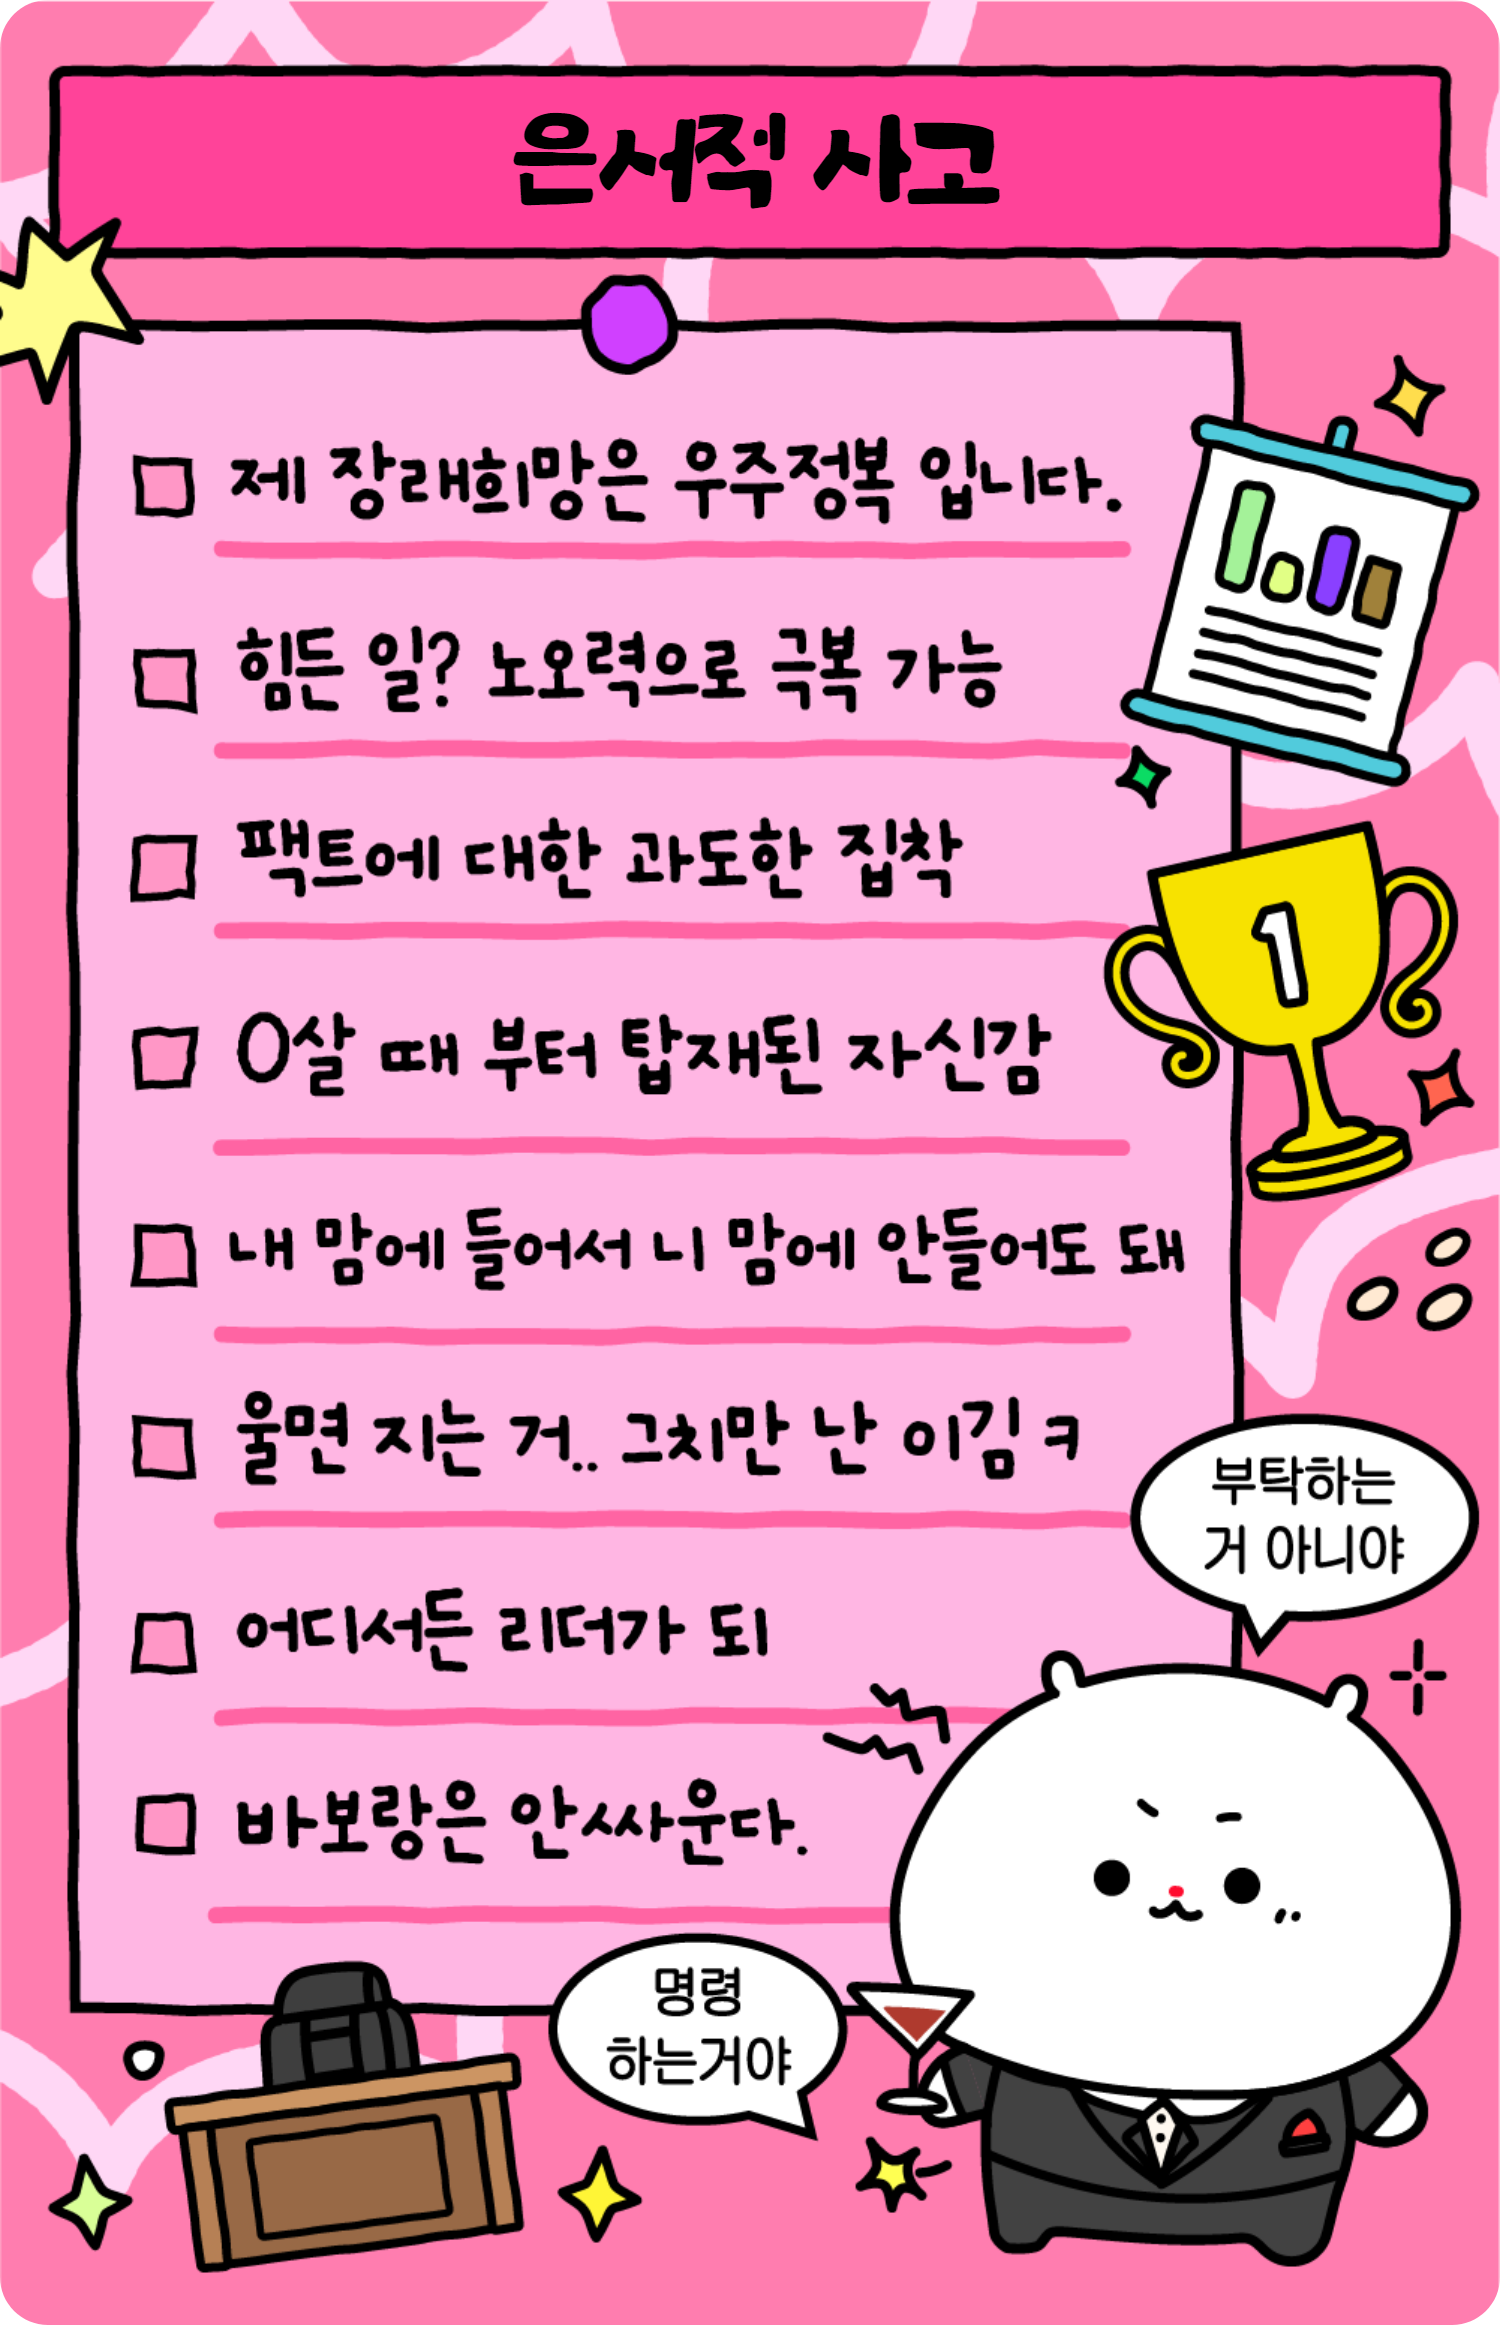 은서적 사고
제 장래희망은 우주정복 입니다.
힘든 일? 노오력으로 극복 가능
팩트에 대한 과도한 집착
0살 때 부터 탑재된 자신감
내 맘에 들어서 니 맘에 안들어도 돼
울면 지는 거.. 그치만 난 이김 ㅋ
어디서든 리더가 되
바보랑은 안싸운다.
1
부탁하는
거 아니야
명령
하는거야